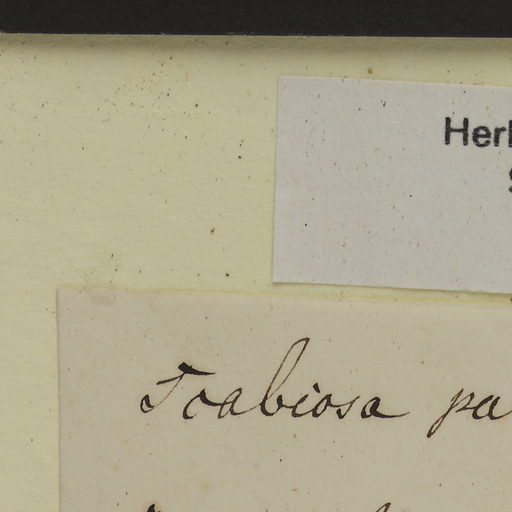 Herl
Scabiosa pa